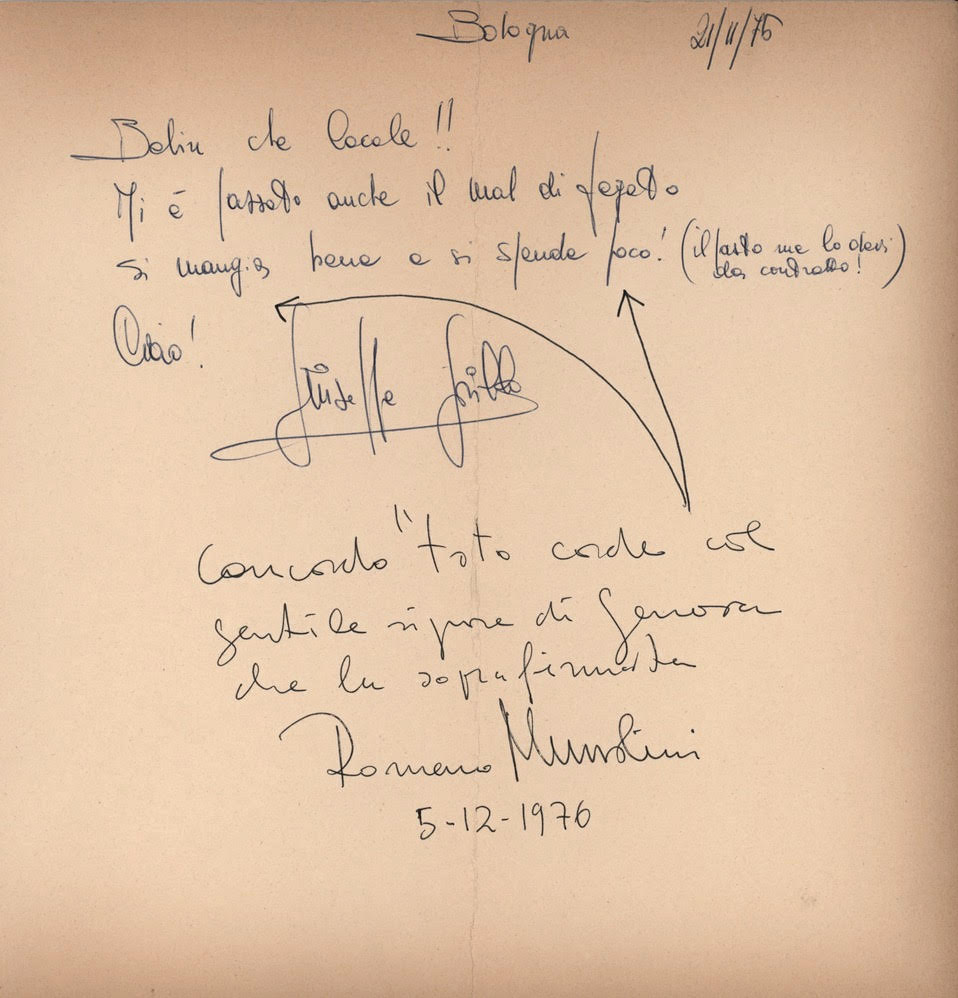 Bologna 21/11/76
Belin che locale!!
Mi è passato anche il mal di fegato
si mangia bene e si spende poco! (il pasto me lo devi
da contratto!)
Ciao!
Giuseppe Grillo
Concordo "toto corde col
gentile signore di Genova
che ha soprafirmato
Romano Mussolini
5-12-1976